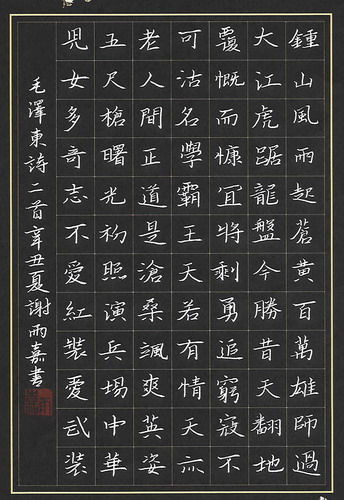 鍾山風雨起蒼黃百萬雄師過
大江虎踞龍盤今勝昔天翻地
覆慨而慷宜將剩勇追窮寇不
可沽名學霸王天若有情天亦
老人間正道是滄桑颯爽英姿
五尺槍曙光初照演兵場中華
兒女多奇志不愛紅裝愛武裝
毛澤東詩二首辛丑夏謝雨嘉書